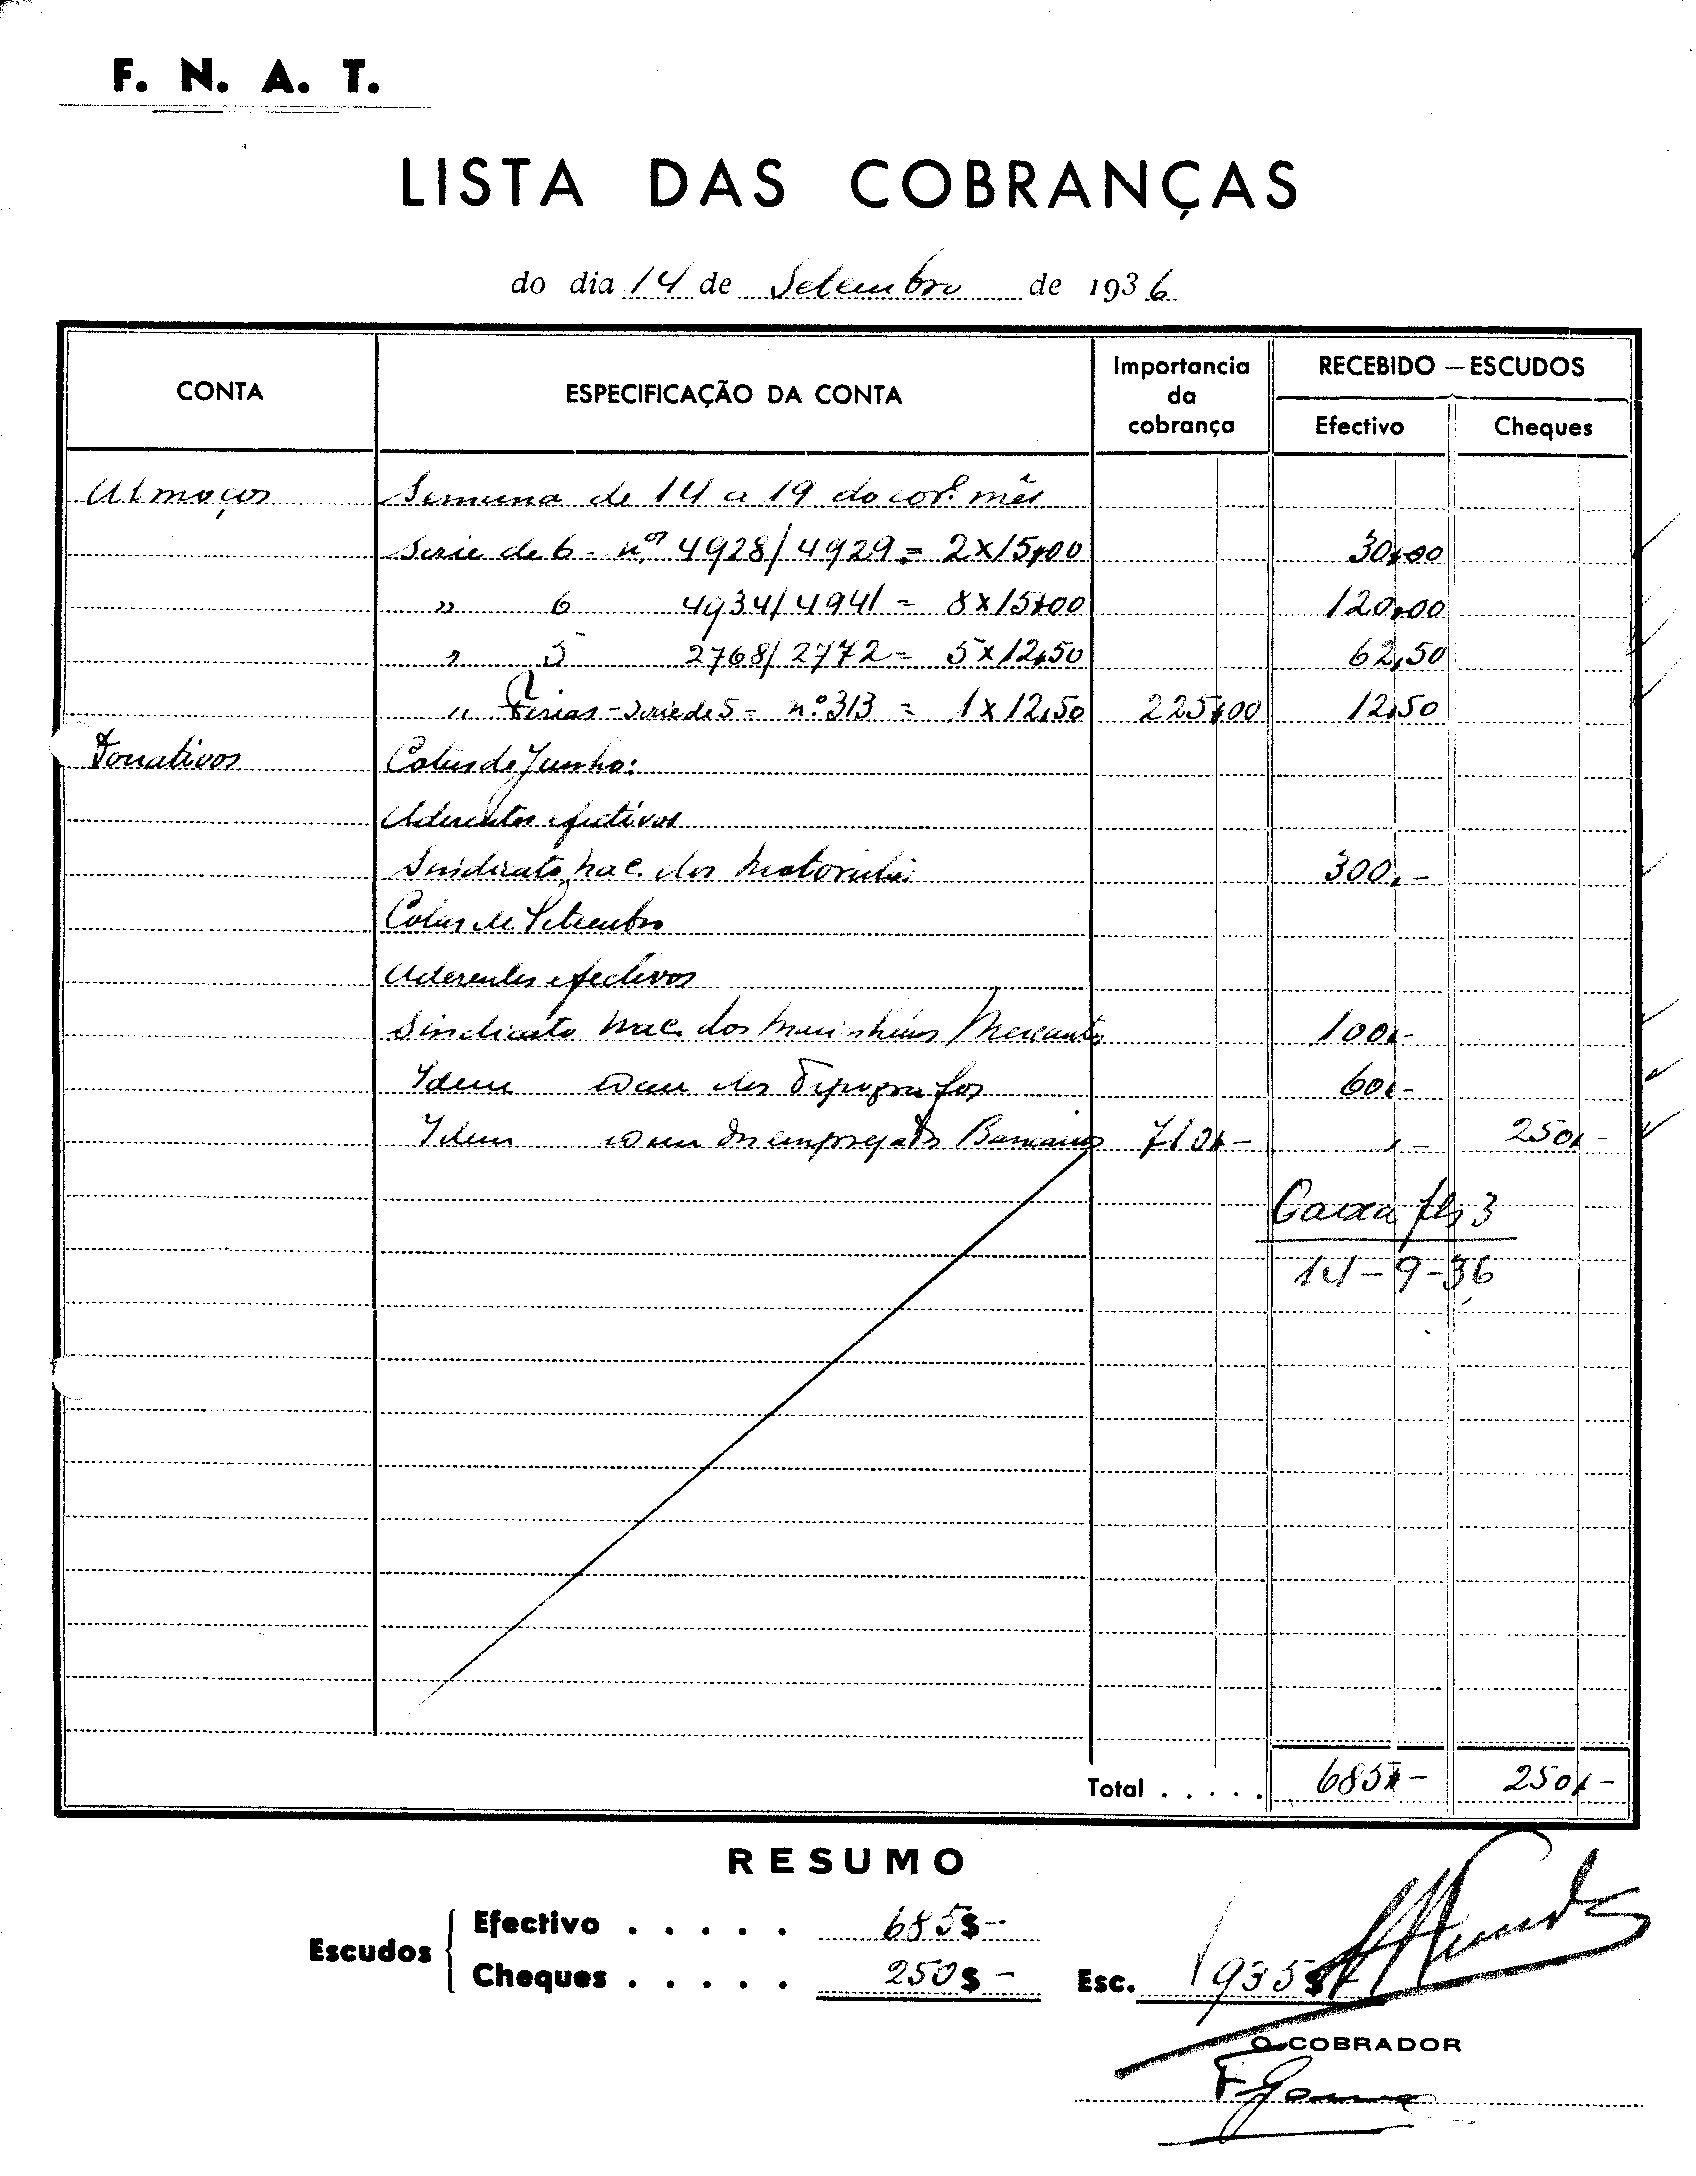 F. N. A. T.
LISTA DAS COBRANÇAS
do dia 14 de Setembro de 1936
CONTA
ESPECIFICAÇÃO DA CONTA
Importancia da cobrança
RECEBIDO — ESCUDOS
Efectivo
Cheques
Almoços Semana de 14 a 19 do cor.e mês
Serie de 6 - nos 4928/4929 = 2x15$00 30$00
" 6 4934/4941 = 8x15$00 120$00
" 5 2768/2772 = 5x12$50 62$50
" Férias - Serie de 5 - nº 313 = 1x12$50 225$00 12$50
Donativos Cotas de Junho:
Aderentes efectivos
Sindicato Nac. dos 300$-
Cotas de Setembro
Aderentes efectivos
Sindicato Nac. dos Mercantes 100$-
Idem dos Tipografos 60$-
Idem dos empregados Bancarios 710$- $- 250$-
Caixa fls 3
14-9-36
Total ..... 685$- 250$-
RESUMO
Escudos
Efectivo ..... 685$-
Cheques ..... 250$-
Esc. 935$
O COBRADOR